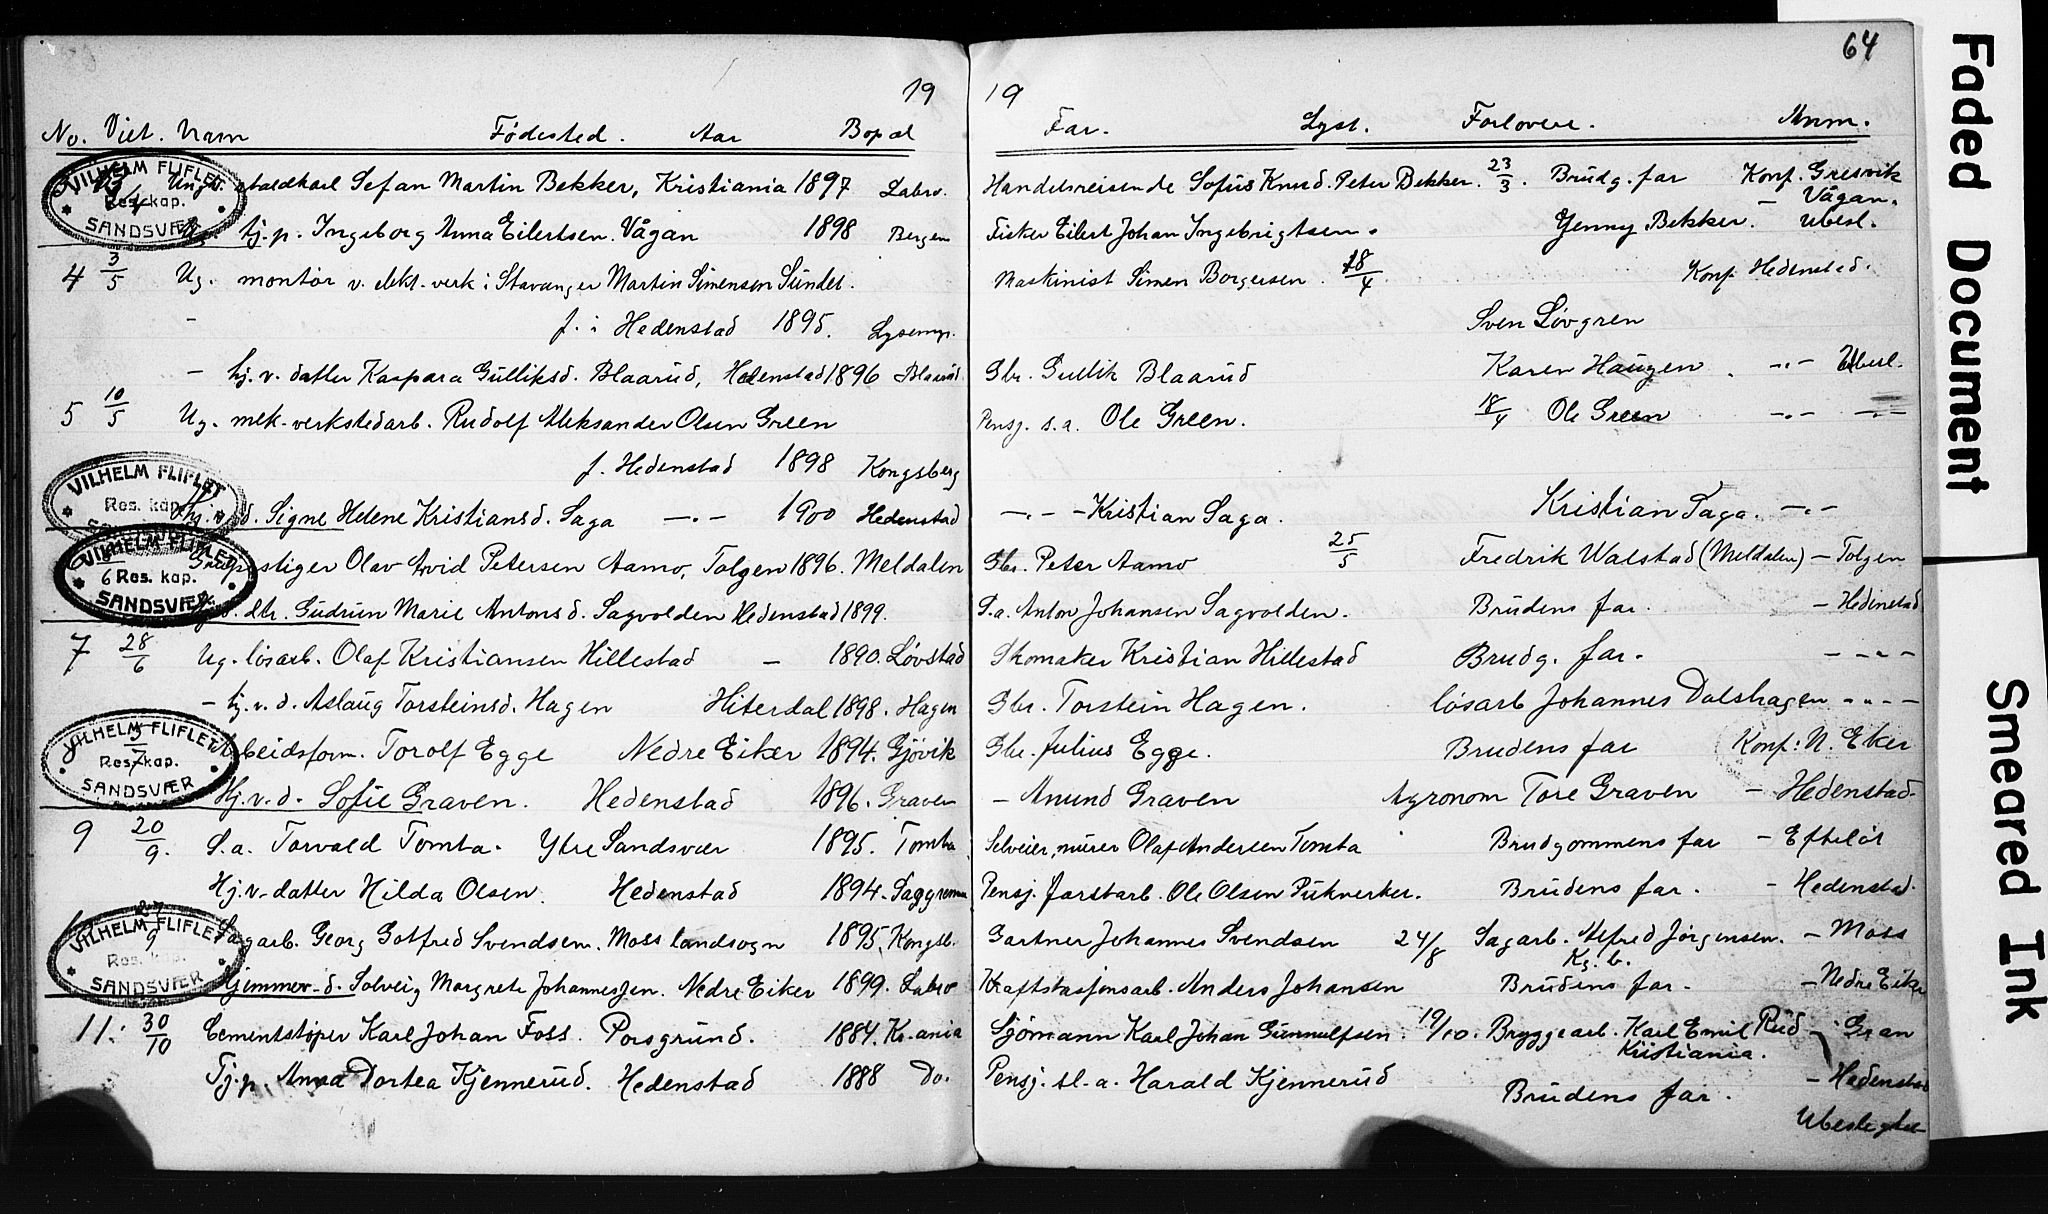 64
19 19
No. Viet. Navn Fødested. Aar Bopæl Far. Lyst. Forlovere. Anm.
VILHELM FLIFLET Res. kap. SANDSVÆR
Ungk. staldkarl Stefan Martin Bekker, Kristiania 1897 Labro. Handelsreisende Sofus Knud Peter Bekker. 23/3. Brudg. far Konf. Gresvik
— Vågan.
tj.p. Ingeborg Anna Eilertsen. Vågan 1898 Bergen Fisker Eilert Johan Ingebrigtsen. Jenny Bekker. Ubesl.
4 3/5 Ug. montør v. elekt. verk i Stavanger Martin Simensen Sundet. Maskinist Simen Borgersen. 18/4 Konf. Hedenstad.
— f. i Hedenstad 1895. Lysemp. Sven Løvgren
— hj. v. datter Kaspara Gulliksd. Blaarud, Hedenstad 1896 Blaarud Gbr. Gullik Blaarud Karen Haugen —.— Ubesl.
5 10/5 Ug. mek. verkstedarb. Rudolf Aleksander Olsen Green Pensj. s.a. Ole Green. 18/4 Ole Green —.— —.—
f. Hedenstad 1898 Kongsberg
VILHELM FLIFLET Res. kap.
hj. v. d. Signe Helene Kristiansd. Saga —.— 1900 Hedenstad —.— Kristian Saga. Kristian Saga. —.—
VILHELM FLIFLET 6 Res. kap. SANDSVÆR
stiger Olav Arvid Petersen Aamo, Tolgen 1896. Meldalen Gbr. Peter Aamo 25/5 Fredrik Walstad (Meldalen) — Tolgen
dtr. Gudrun Marie Antonsd. Sagvolden Hedenstad 1899. S.a. Anton Johansen Sagvolden. Brudens far. — Hedenstad
7 28/6 Ug. løsarb. Olaf Kristiansen Hillestad — 1890. Løvstad Skomaker Kristian Hillestad Brudg. far. — — — —
— hj. v. d. Aslaug Torsteinsd. Hagen Hiterdal 1898. Hagen Gbr. Torstein Hagen. løsarb Johannes Dalshagen — — — —
VILHELM FLIFLET Res. kap. SANDSVÆR
8 3/7 Arbeidsform. Torolf Egge Nedre Eiker 1894. Gjøvik Gbr. Julius Egge. Brudens far Konf: N. Eker
Hj. v. d. Sofie Graven. Hedenstad 1896. Graven — Amund Graven Agronom Tore Graven — Hedenstad
9 20/9. S.a. Torvald Tomta. Ytre Sandsvær 1895. Tomta Selveier, murer Olaf Andersen Tomta Brudgommens far — Efteløt
Hj. v. datter Hilda Olsen. Hedenstad 1894. Saggrenda Pensj. forstarb. Ole Olsen Pukverker. Brudens far. — Hedenstad.
VILHELM FLIFLET Res. kap. SANDSVÆR
27/9 Sagarb. Georg Gotfred Svendsen. Moss landsogn 1895. Kongsb. Gartner Johannes Svendsen 24/8 Sagarb. Alfred Jørgensen. — Moss
Kg. b.
Hjemmev. d. Solveig Margrete Johannessen. Nedre Eiker 1899. Labro Kraftstasjonsarb. Anders Johansen Brudens far. — Nedre Eiker
11: 30/10 Cementstøper Karl Johan Foss. Porsgrund. 1884. Kr.ania Sjømann Karl Johan Gunnulfsen. 19/10. Bryggearb. Karl Emil Rud — Gran
Kristiania.
Tj.p. Anna Dortea Kjennerud. Hedenstad 1888 Do. Pensj. st.a. Harald Kjennerud Brudens far. — Hedenstad
Ubeslegtet
Faded Document
Smeared Ink